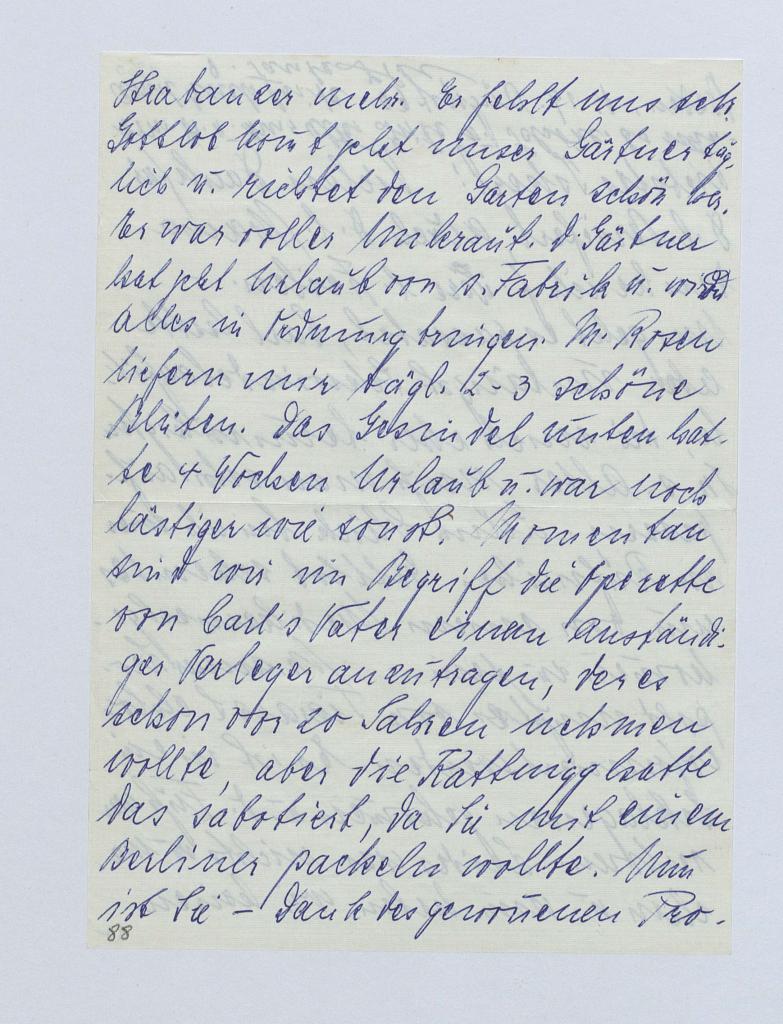 Strabanzer mehr. Er fehlt uns sehr.
Gottlob kom̄t jetzt unser Gärtner täg-
lich u. richtet den Garten schön her.
Er war voller Unkraut. D. Gärtner
hat jetzt Urlaub von s. Fabrik u. wird
alles in Ordnung bringen. M. Rosen
liefern mir tägl. 2-3 schöne
Blüten. Das Gesindel unten hat-
te 4 Wochen Urlaub u. war noch
lästiger wie sonst. Momentan
sind wir im Begriff die Operette
von Carl's Vater einen anständi-
gen Verleger anzutragen, der es
schon vor 20 Jahren nehmen
wollte, aber die Kattnigg hatte
das sabotiert, da Sie mit einem
Berliner packeln wollte. Nun
ist Sie – dank des gewon̄enen Pro-
88